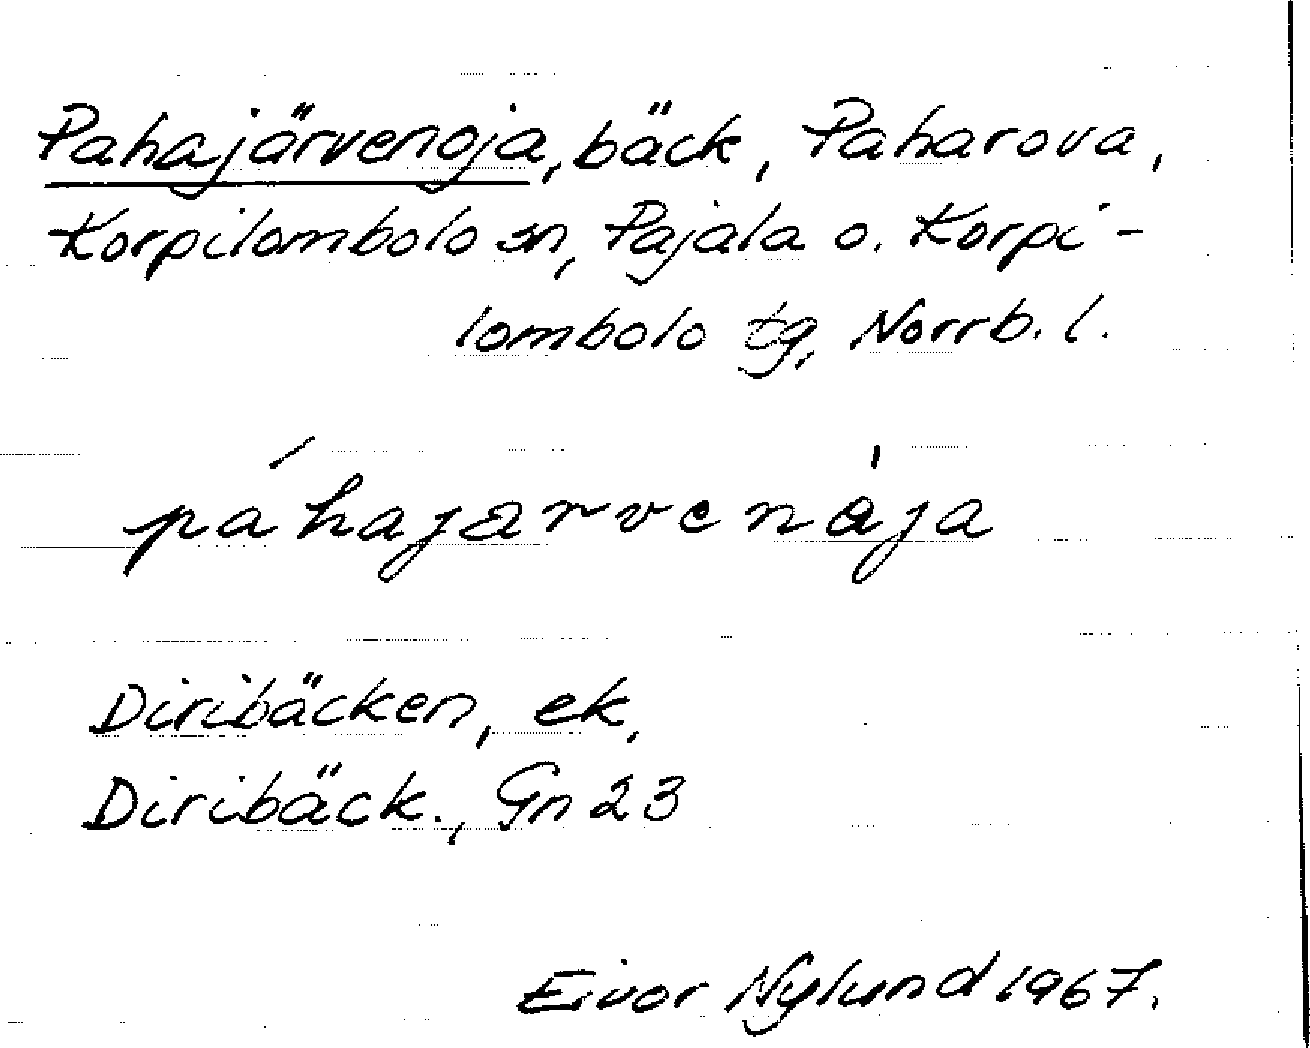 Pahajärvenoja, bäck, Paharova,
Korpilombolo sn, Pajala o. Korpi-
lombolo tg, Norrb. l.
páhajarvenàja
Diribäcken, ek,
Diribäck., Gn 23
Eivor Nylund 1967.